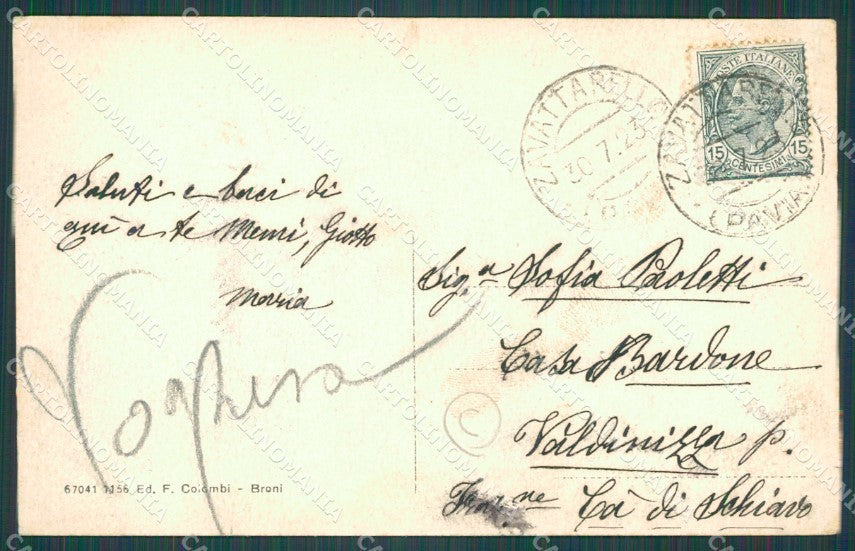 Saluti e baci di
qui a te Memi, Giotto
Maria
Voghera
67041 1156 Ed. F. Colombi - Broni
ZAVATTARELLO
30.7.23
POSTE ITALIANE
15 15
CENTESIMI
ZAVATTARELLO
(PAVIA)
Sig.a Sofia Paoletti
Casa Bardone
Valdinizza p.
Fraz.ne Cà di Schiavo
©
CARTOLINOMANIA